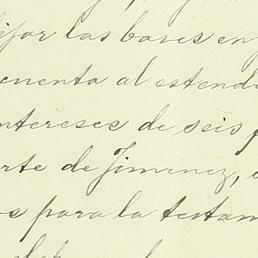 fijar las bases en
cuenta al estende
intereses de seis
rte de Jimenez,
os para la testam